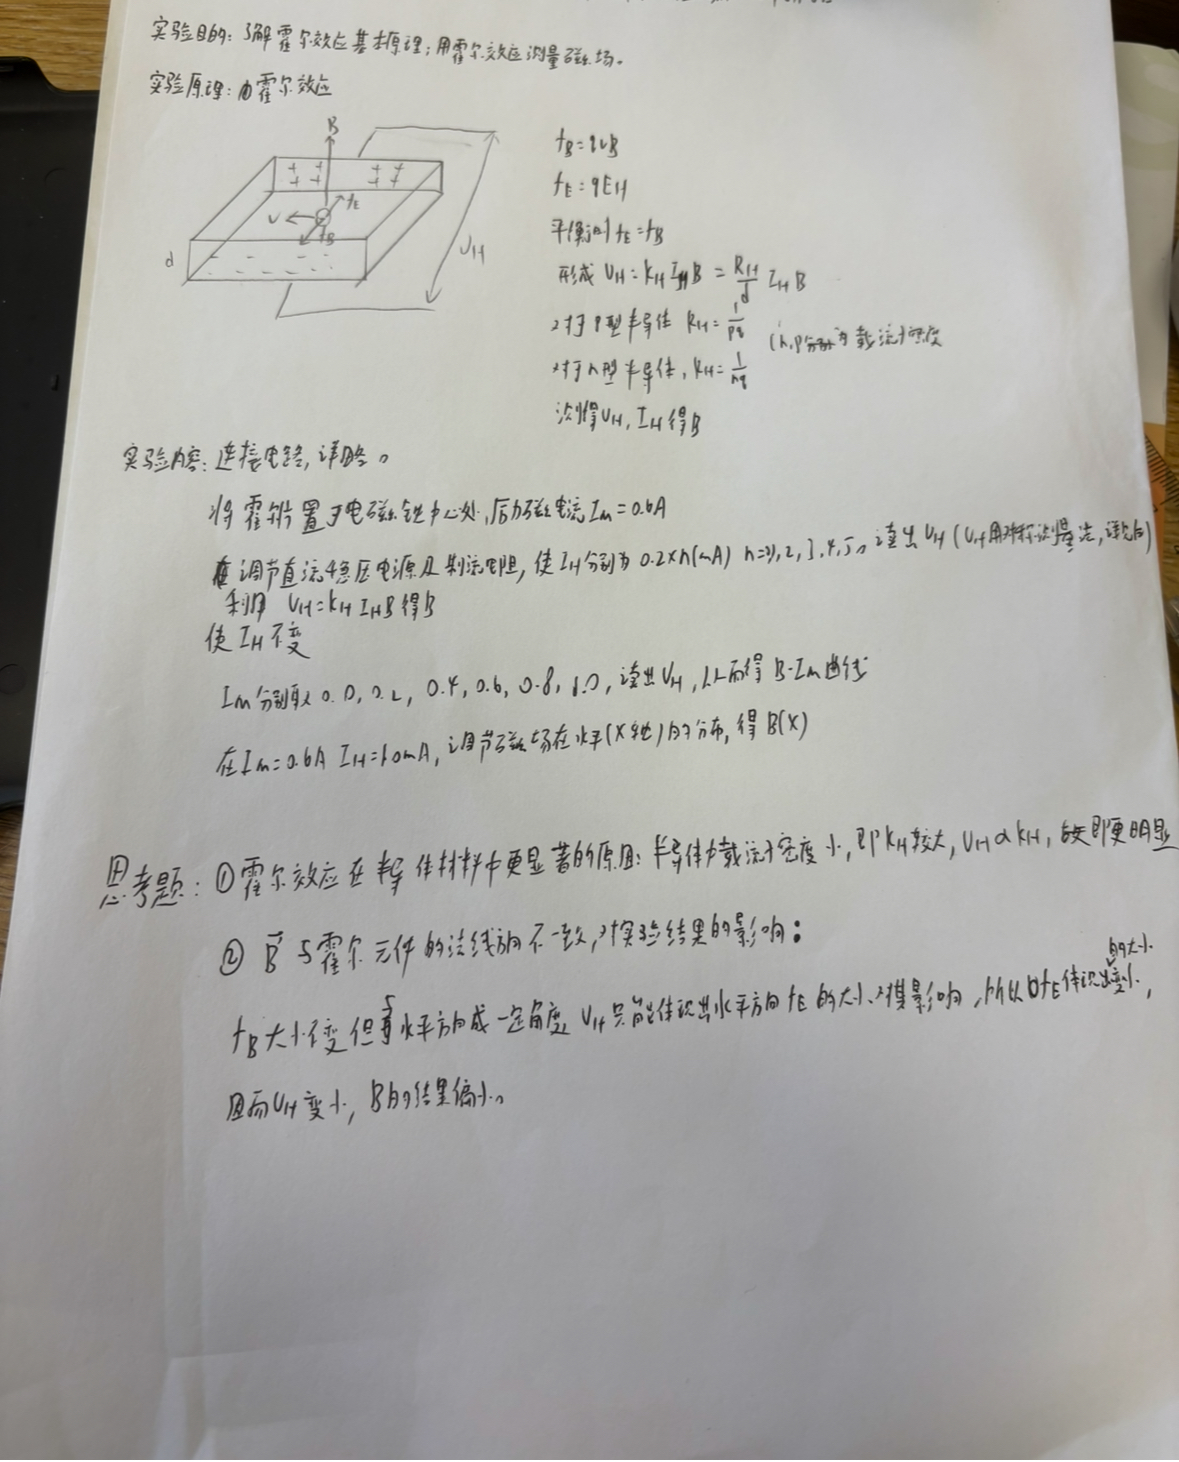 实验目的: 了解霍尔效应基本原理; 用霍尔效应测量磁场。
实验原理: 由霍尔效应
B
fE
v
fB
d
UH
fB=qvB
fE=qEH
平衡时 fE=fB
形成 UH=KH IH B = RH/d IH B
对于P型半导体 RH=1/pq
(n,p分别为载流子密度
对于n型半导体, RH=1/nq
测得UH, IH 得B
实验内容: 连接电路, 详略。
将霍尔片置于电磁铁中心处, 励磁电流Im=0.6A
调节直流稳压电源及制流电阻, 使IH分别为 0.2×n(mA) n=1,2,3,4,5, 读出UH (UH用对称测量法, 详见后)
利用 UH=KH IHB 得B
使IH不变
Im分别取 0.0, 0.2, 0.4, 0.6, 0.8, 1.0, 读出UH, 从而得 B-Im曲线
在Im=0.6A IH=1.0mA, 调节磁场在水平(X轴)的分布, 得B(X)
思考题: ①霍尔效应在半导体材料中更显著的原因: 半导体中载流子密度小, 即KH较大, UH∝KH, 故即更明显
② B⃗与霍尔元件的法线方向不一致, 对实验结果的影响:
fB大小不变但与水平方向成一定角度, UH只能体现出水平方向fE的大小对其影响, 所以由fE体现出的大小变小,
因而UH变小, B的结果偏小。